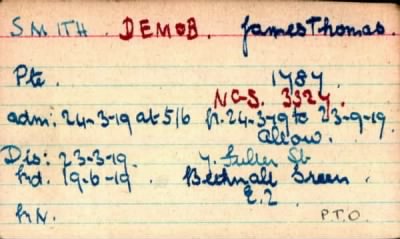 SMITH. DEMOB. James Thomas.
Pte. 1787.
NGS. 3324.
adm: 24-3-19 at 5/6 fr. 24-3-19 to 23-9-19.
allow.
Dis: 23-3-19. 7. St
hd. 19-6-19. Bethnall Green.
E.2
hN. P.T.O.